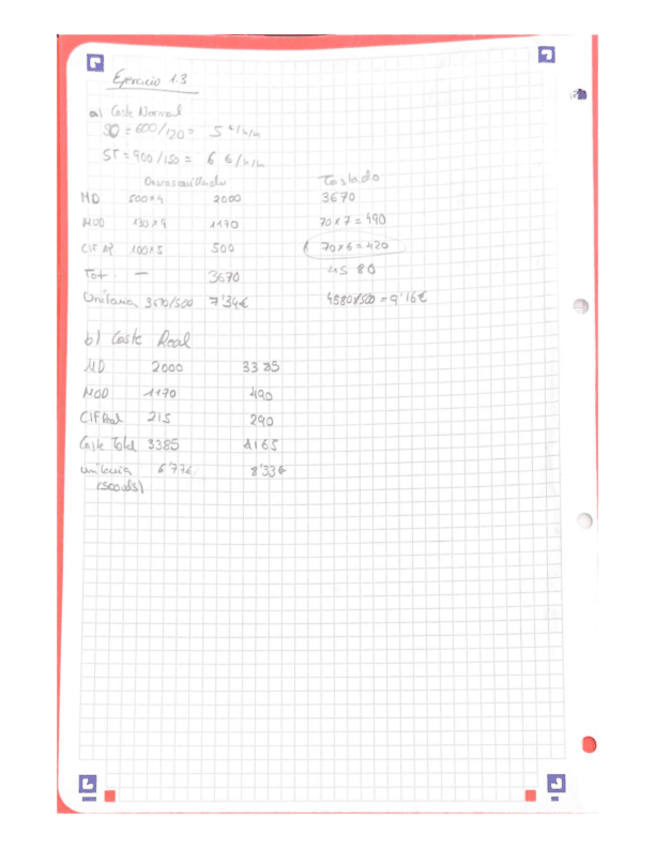 Ejercicio 1.3
a) Coste Normal
SD = 600/120 = 5 €/h/m
ST = 900/150 = 6 €/h/m
Tostado
MD 500x4 2000 3670
MOD 130x9 1170 70x7 = 490
CIF AP 100x5 500 70x6 = 420
Tot. — 3670 4580
Unitario 3670/500 7'34€ 4580/500 = 9'16€
b) Coste Real
MD 2000 3385
MOD 1170 490
CIF Real 215 290
Coste Total 3385 4165
Unitario 6'77€ 8'33€
(500uds)